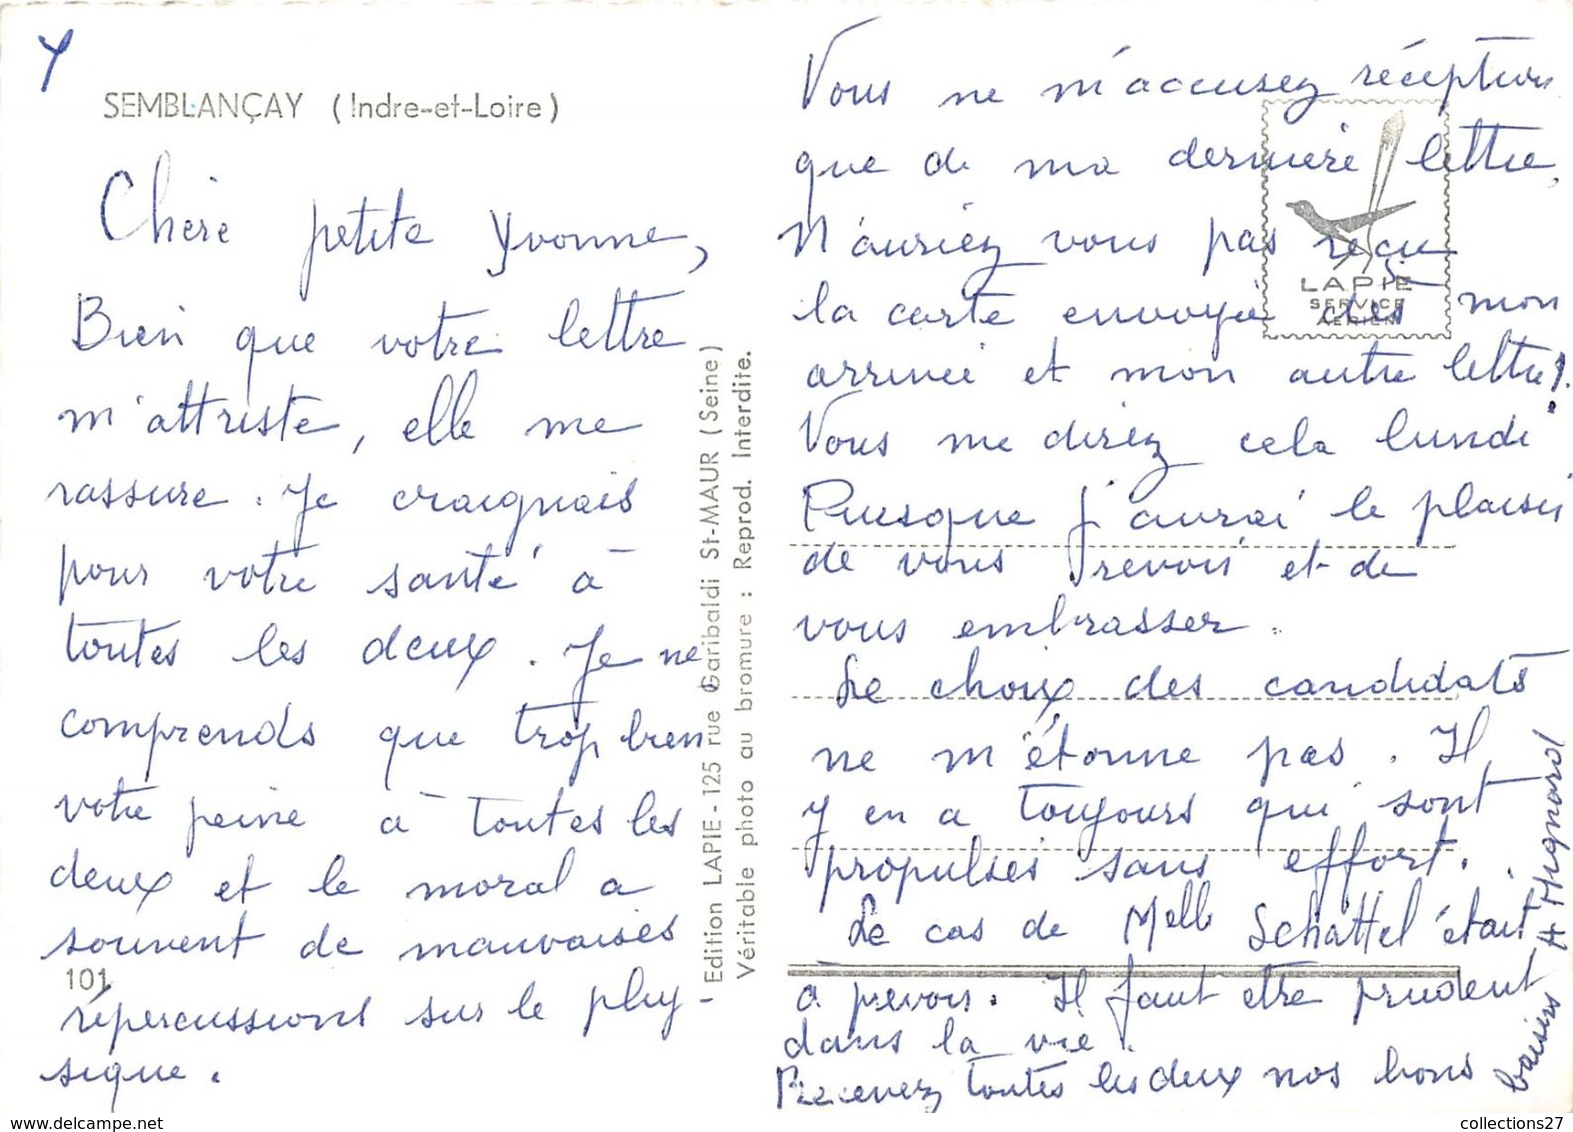 Y
SEMBLANÇAY (Indre-et-Loire)
Chère petite Yvonne,
Bien que votre lettre
m'attriste, elle me
rassure. Je craignais
pour votre santé à
toutes les deux. Je ne
comprends que trop bien
votre peine à toutes les
deux et le moral a
souvent de mauvaises
101
répercussions sur le phy-
sique.
Edition LAPIE - 125 rue Garibaldi St-MAUR (Seine)
Véritable photo au bromure : Reprod. Interdite.
Vous ne m'accusez réception
que de ma dernière lettre,
N'auriez vous pas reçu
la carte envoyée dès mon
arrivée et mon autre lettre?
Vous me direz cela lundi
Puisque j'aurai le plaisir
de vous revoir et de
vous embrasser.
Le choix des candidats
ne m'étonne pas. Il
y en a toujours qui sont
propulsés sans effort.
Le cas de Melle Schattel était
à prévoir. Il faut être prudent
dans la vie.
Recevez toutes les deux nos bons
baisers A Mignard
LAPIE
SERVICE
AERIEN
collections27